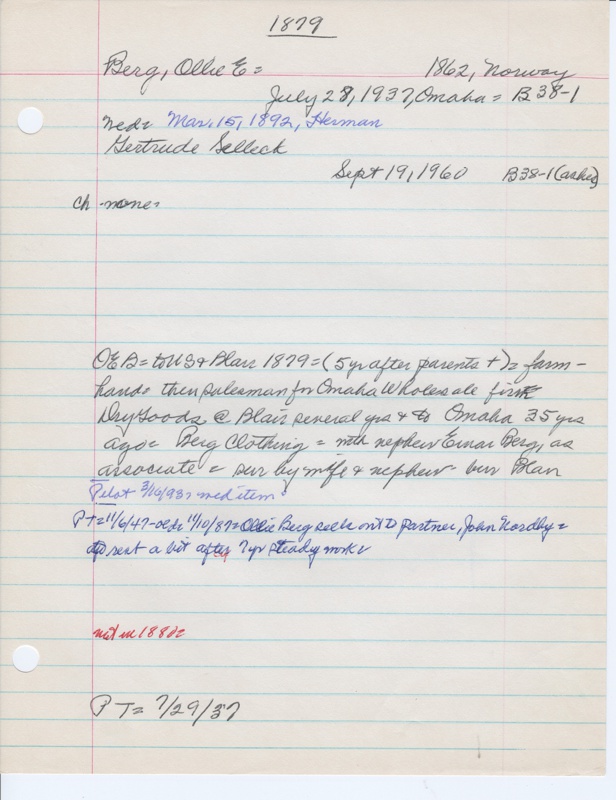 1879
Berg, Ollie E = 1862, Norway
July 28, 1937, Omaha = B 38-1
Wed = Mar. 15, 1892, Herman
Gertrude Selleck
Sept 19, 1960 B38-1 (ashes)
ch - none =
OEB = to US & Blair 1879 = (5 yr after parents +) = farm-
hand = then salesman for Omaha Wholesale firm
Dry Goods @ Blair several yrs & to Omaha 35 yrs
ago = Berg Clothing = with nephew Einar Berg, as
associate = sur by wife & nephew - bur Blair
Pilot 3/16/93 = wed item =
PT = 11/6/47 - 11/10/87 = Ollie Berg sells out to partner, John Nordby =
to rest a bit after 7 yr steady work
not in 1880 =
PT = 7/29/37